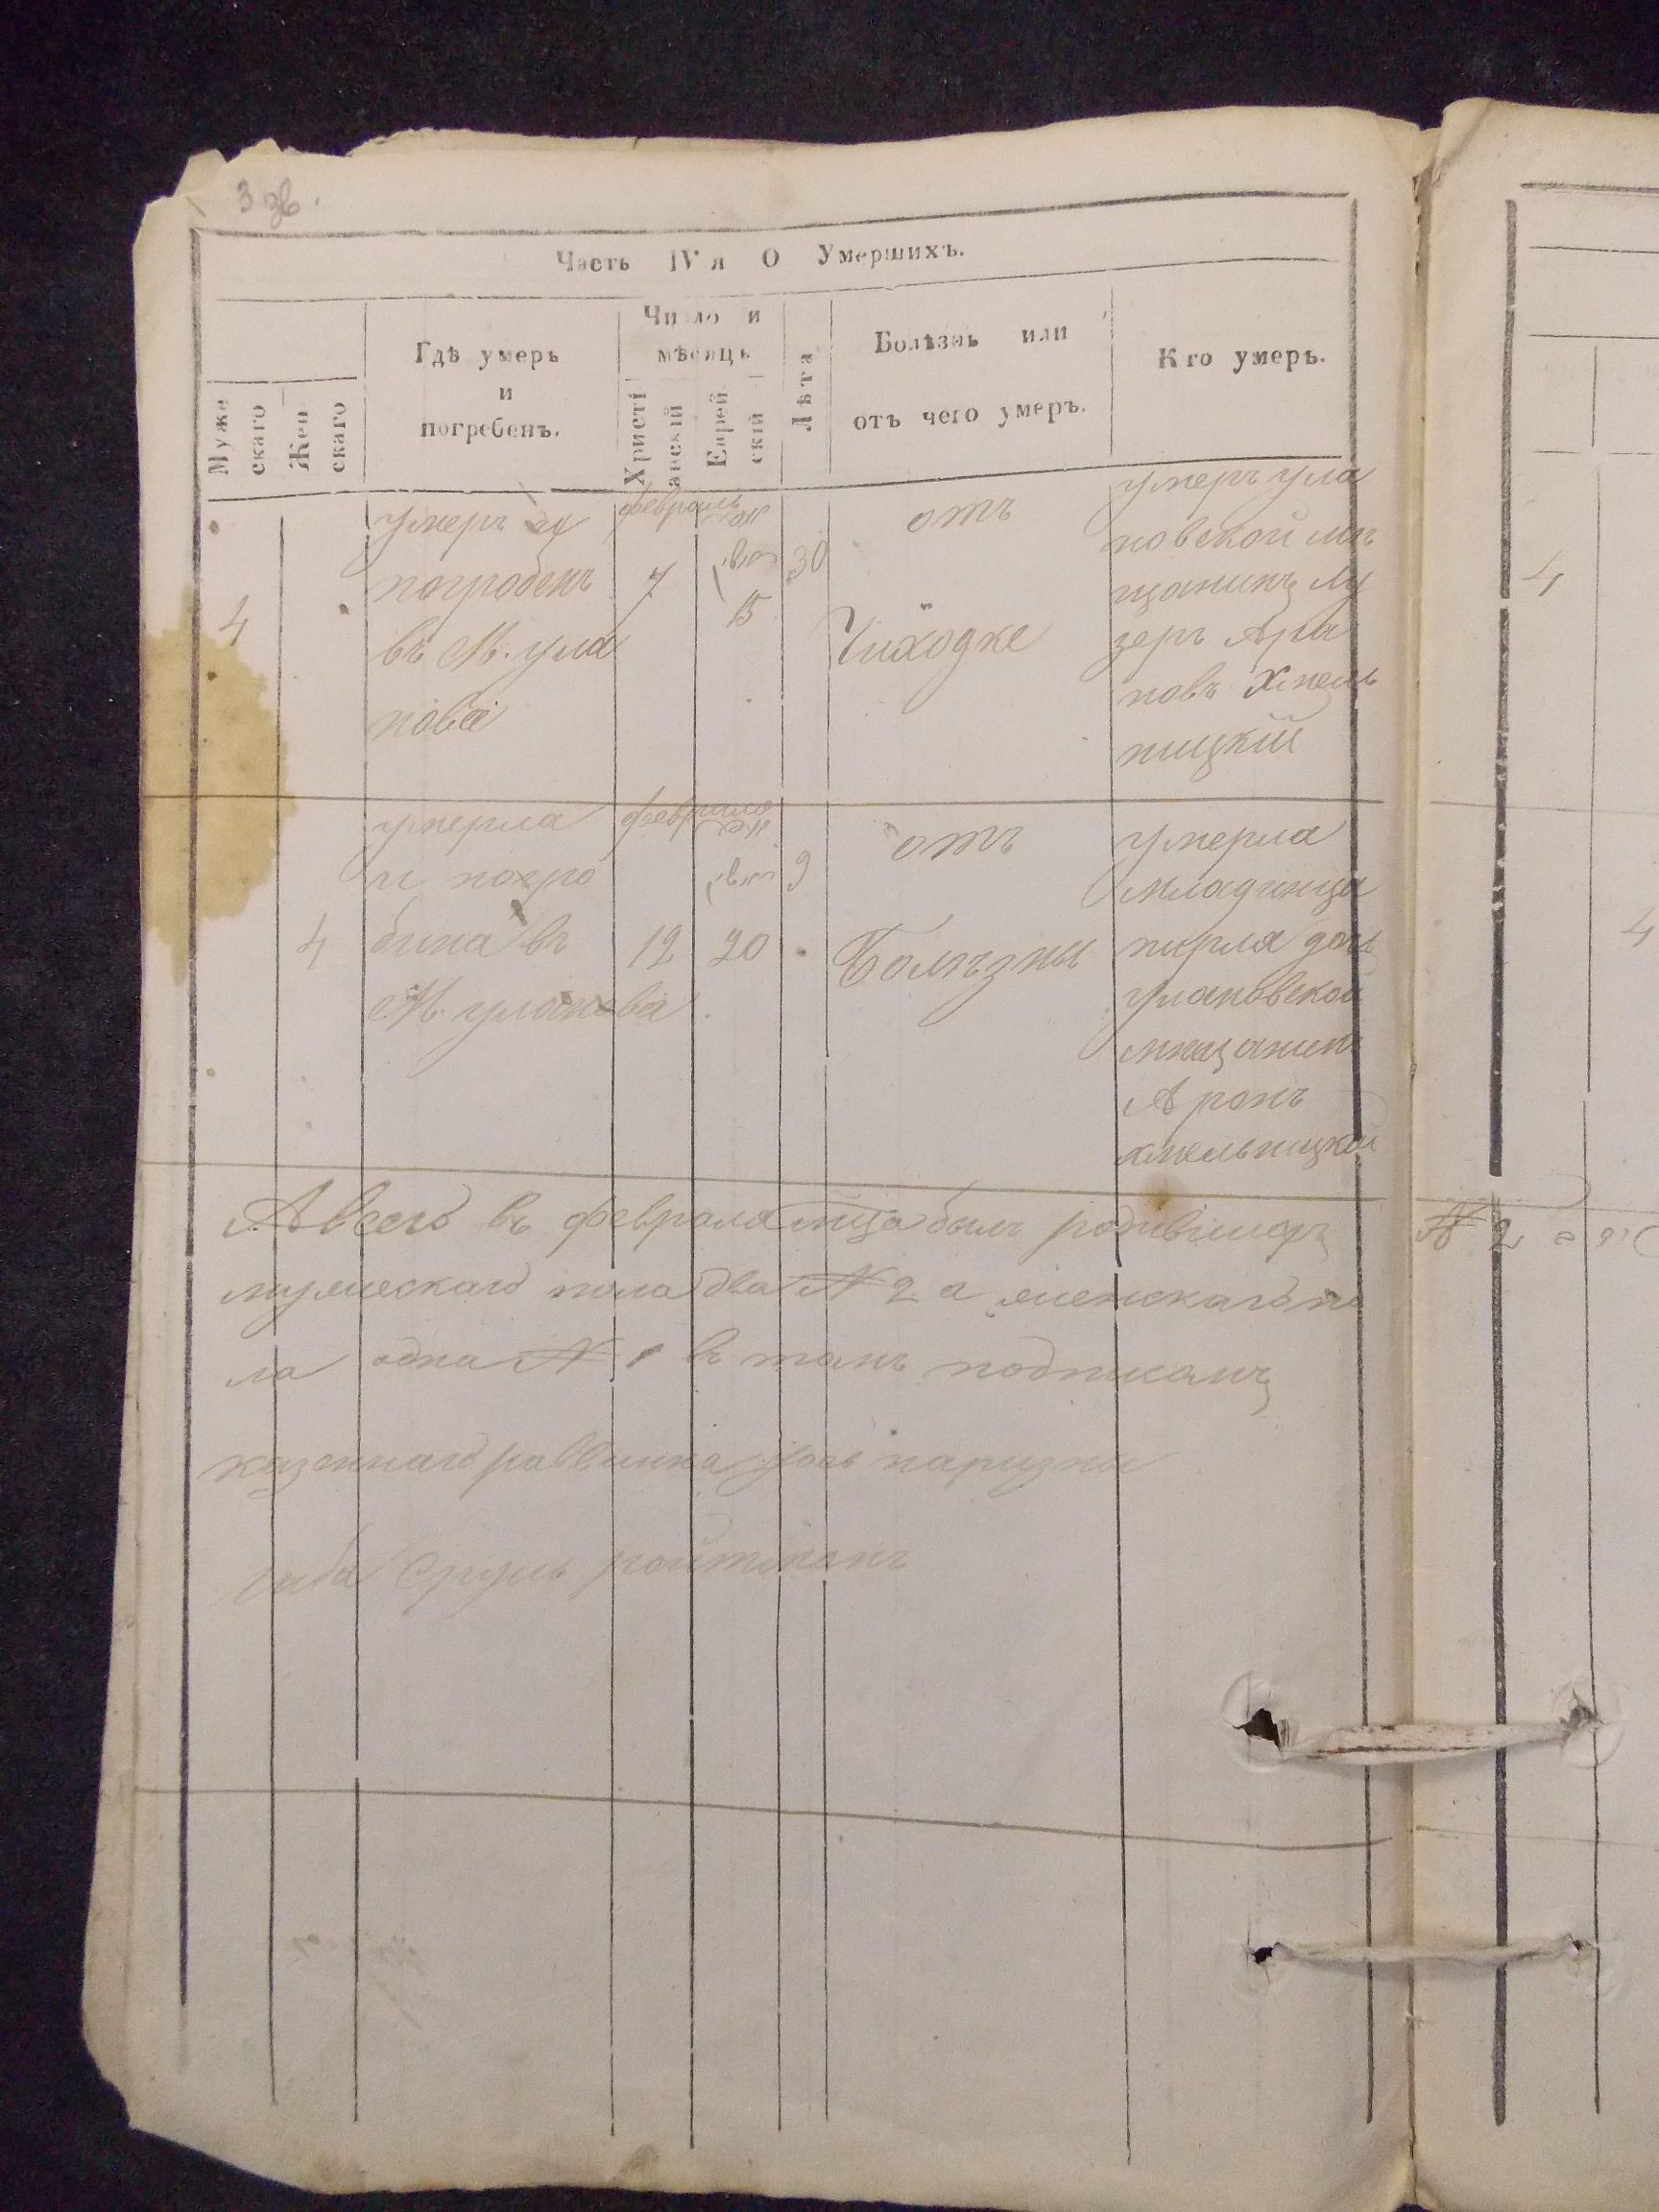 3 зв.
Часть IV я О Умершихъ.
Муже
скаго
Жен
скаго
Гдѣ умеръ
и
погребенъ.
Число и
мѣсяцъ
Христі
анскій
Еврей
скій
Лѣта
Болѣзнь или
отъ чего умеръ.
Кто умеръ.
4
умеръ
погробенъ
въ М. ула
нова
февраль
7
15
30
отъ
Чиходке
умеръ ула
новской мѣ
щанинъ Лу
зеръ Аро
новъ Хмель
ницкій
4
умерла
и погро
бина въ
М. уланова
февраля
12
20
9
отъ
Болѣзны
умерла
младинца
перля дочь
улановской
мещанина
Аронъ
хмельницкой
А всего въ февраля мца былъ родившихъ
мужескаго пола два № 2 а женскаго по
ла одна № 1 въ томъ подпискамъ
казеннаго раввина
Сруль ройтманъ
4
4
№ 2